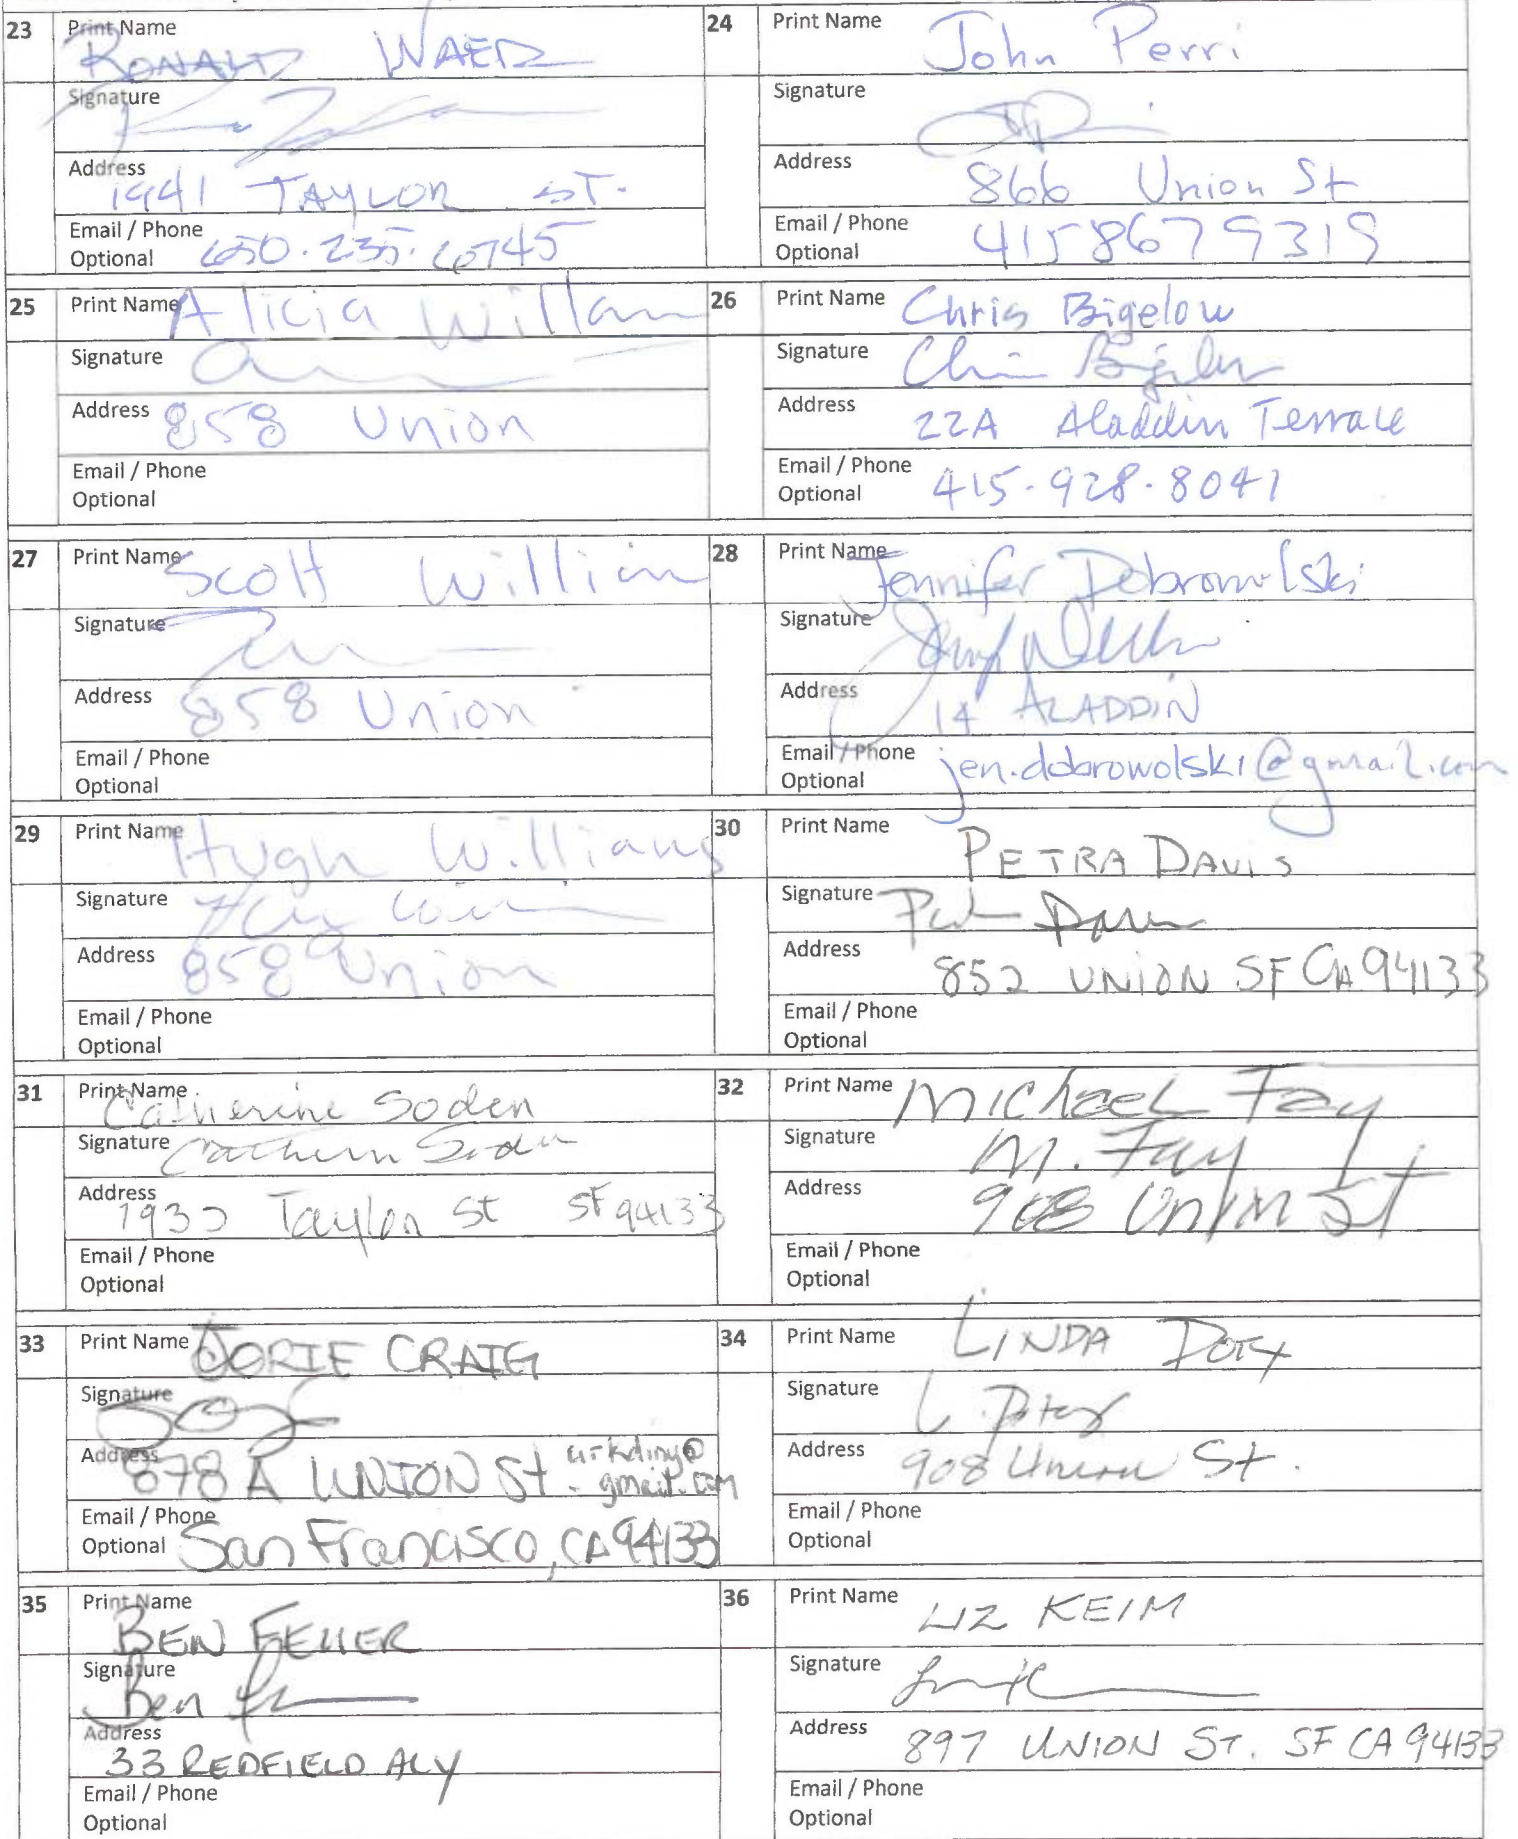 23 Print Name RONALD
Signature
Address 1941 TAYLOR ST.
Email / Phone
Optional 650.235.6745
24 Print Name John Perri
Signature
Address 866 Union St
Email / Phone
Optional 4158679319
25 Print Name Alicia
Signature
Address 858 Union
Email / Phone
Optional
26 Print Name Chris Bigelow
Signature Chris Bigelow
Address 22A Aladdin Terrace
Email / Phone
Optional 415-928-8041
27 Print Name Scott
Signature
Address 858 Union
Email / Phone
Optional
28 Print Name Jennifer Dobrowolski
Signature
Address 14 ALADDIN
Email / Phone
Optional jen.dobrowolski@gmail.com
29 Print Name Hugh Williams
Signature
Address 858 Union
Email / Phone
Optional
30 Print Name PETRA DAVIS
Signature
Address 852 UNION SF CA 94133
Email / Phone
Optional
31 Print Name Catherine Soden
Signature Catherine Soden
Address Taylor St SF 94133
Email / Phone
Optional
32 Print Name Michael Fay
Signature M. Fay
Address 908 Union St
Email / Phone
Optional
33 Print Name CRAIG
Signature
Address 878 A UNION St. gmail.com
Email / Phone
Optional San Francisco, CA 94133
34 Print Name LINDA DOTY
Signature L. Doty
Address 908 Union St.
Email / Phone
Optional
35 Print Name BEN FELLER
Signature Ben
Address 33 REDFIELD ALY
Email / Phone
Optional
36 Print Name LIZ KEIM
Signature
Address 897 UNION ST. SF CA 94133
Email / Phone
Optional